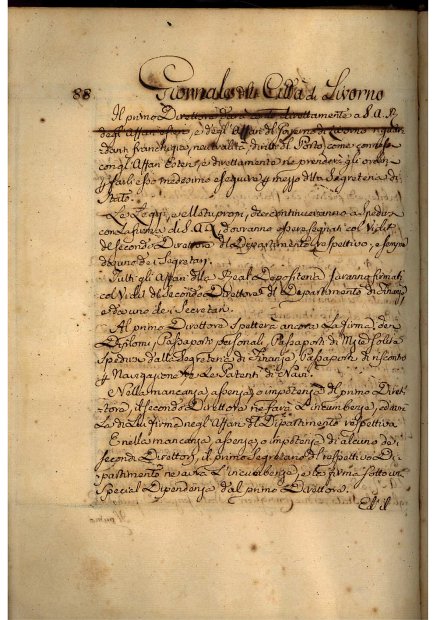 88 Giornale della Città di Livorno
Il primo Direttore darà conto direttamente a S.A.R.
degl'Affari esteri, e degl'Affari di Governo di Livorno riguar-
danti franchigia, neutralità, diritti di Porto, come
cogl'Affari Esteri, e direttamente ne prenderà gli ordini
p farli esso medesimo eseguire p mezzo della Segreteria di
Stato.
Le Leggi, e Motupropri, che continueranno a spedirsi
con la firma di S.A.R. dovranno essere segnati col Vidit
del secondo Direttore del Dipartimento respettivo, e sempre
da uno de i Segretari.
Tutti gli Affari della Real Depositeria saranno firmati
col Vidit del secondo Direttore del Dipartimento di Finanze
e da uno de i Segretari.
Al primo Direttore spetterà ancora la firma dei
Diplomi, Passaporti personali, Passaporti di soliti
spedirsi dalla Segreteria di Finanze, Passaporti di riscontro
p Navigazione, e le Patenti di Navi.
Nella mancanza, assenza, o impotenza del primo Diret-
tore, il secondo Direttore ne farà l'incumbenza,
la di lui firma negl'Affari del Dipartimento respettivo.
E nella mancanza, assenza, o impotenza di alcuno de
secondi Direttori, il primo Segretario del respettivo Di-
partimento ne avrà l'incumbenza, e la firma sotto in
special Dipendenza dal primo Direttore.
Ed il